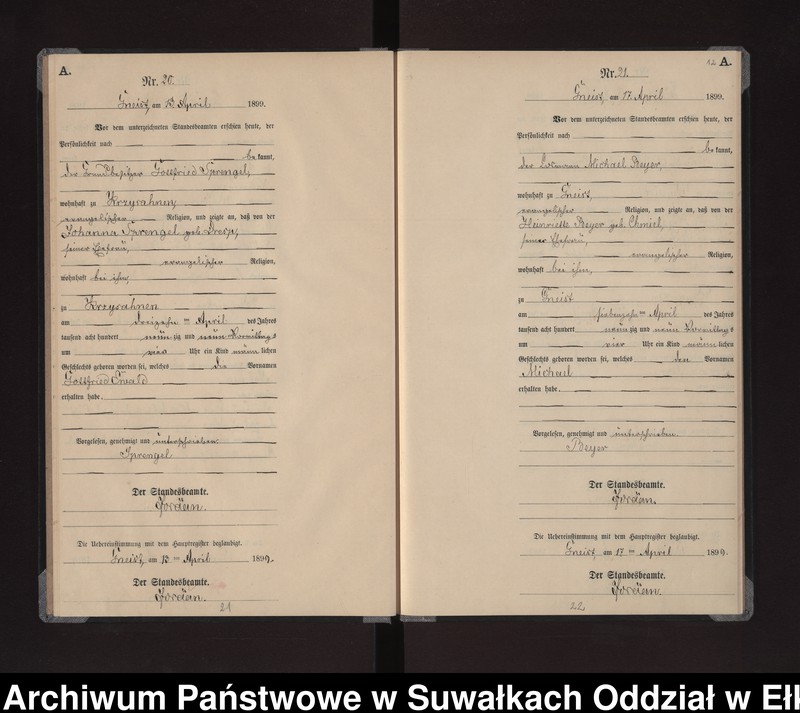 A.
Nr. 20.
Gneist, am 15. April 1899.
Vor dem unterzeichneten Standesbeamten erschien heute, der
Persönlichkeit nach
be kannt,
der Grundbesitzer Gottfried Sprengel,
wohnhaft zu Krzysahnen,
evangelischer Religion, und zeigte an, daß von der
Johanna Sprengel geb.
seiner Ehefrau,
evangelischer Religion,
wohnhaft bei ihm,
zu Krzysahnen
am dreizehn ten April des Jahres
tausend acht hundert neun zig und neun Vormittag s
um vier Uhr ein Kind männ lichen
Geschlechts geboren worden sei, welches die Vornamen
Gottfried Ewald
erhalten habe.
Vorgelesen, genehmigt und unterschrieben
Sprengel
Der Standesbeamte.
Jordan.
Die Uebereinstimmung mit dem Hauptregister beglaubigt.
Gneist, am 15 ten April 1899.
Der Standesbeamte.
Jordan.
21
12 A.
Nr. 21.
Gneist, am 17. April 1899.
Vor dem unterzeichneten Standesbeamten erschien heute, der
Persönlichkeit nach
be kannt,
der Losmann Michael Beyer,
wohnhaft zu Gneist,
evangelischer Religion, und zeigte an, daß von der
Heinriette Beyer geb. Chmiel,
seiner Ehefrau,
evangelischer Religion,
wohnhaft bei ihm,
zu Gneist
am siebenzehn ten April des Jahres
tausend acht hundert neun zig und neun Vormittag s
um vier Uhr ein Kind männ lichen
Geschlechts geboren worden sei, welches den Vornamen
Michael
erhalten habe.
Vorgelesen, genehmigt und unterschrieben.
Beyer
Der Standesbeamte.
Jordan.
Die Uebereinstimmung mit dem Hauptregister beglaubigt.
Gneist, am 17 ten April 1899.
Der Standesbeamte.
Jordan.
22
Archiwum Państwowe w Suwałkach Oddział w Ełk